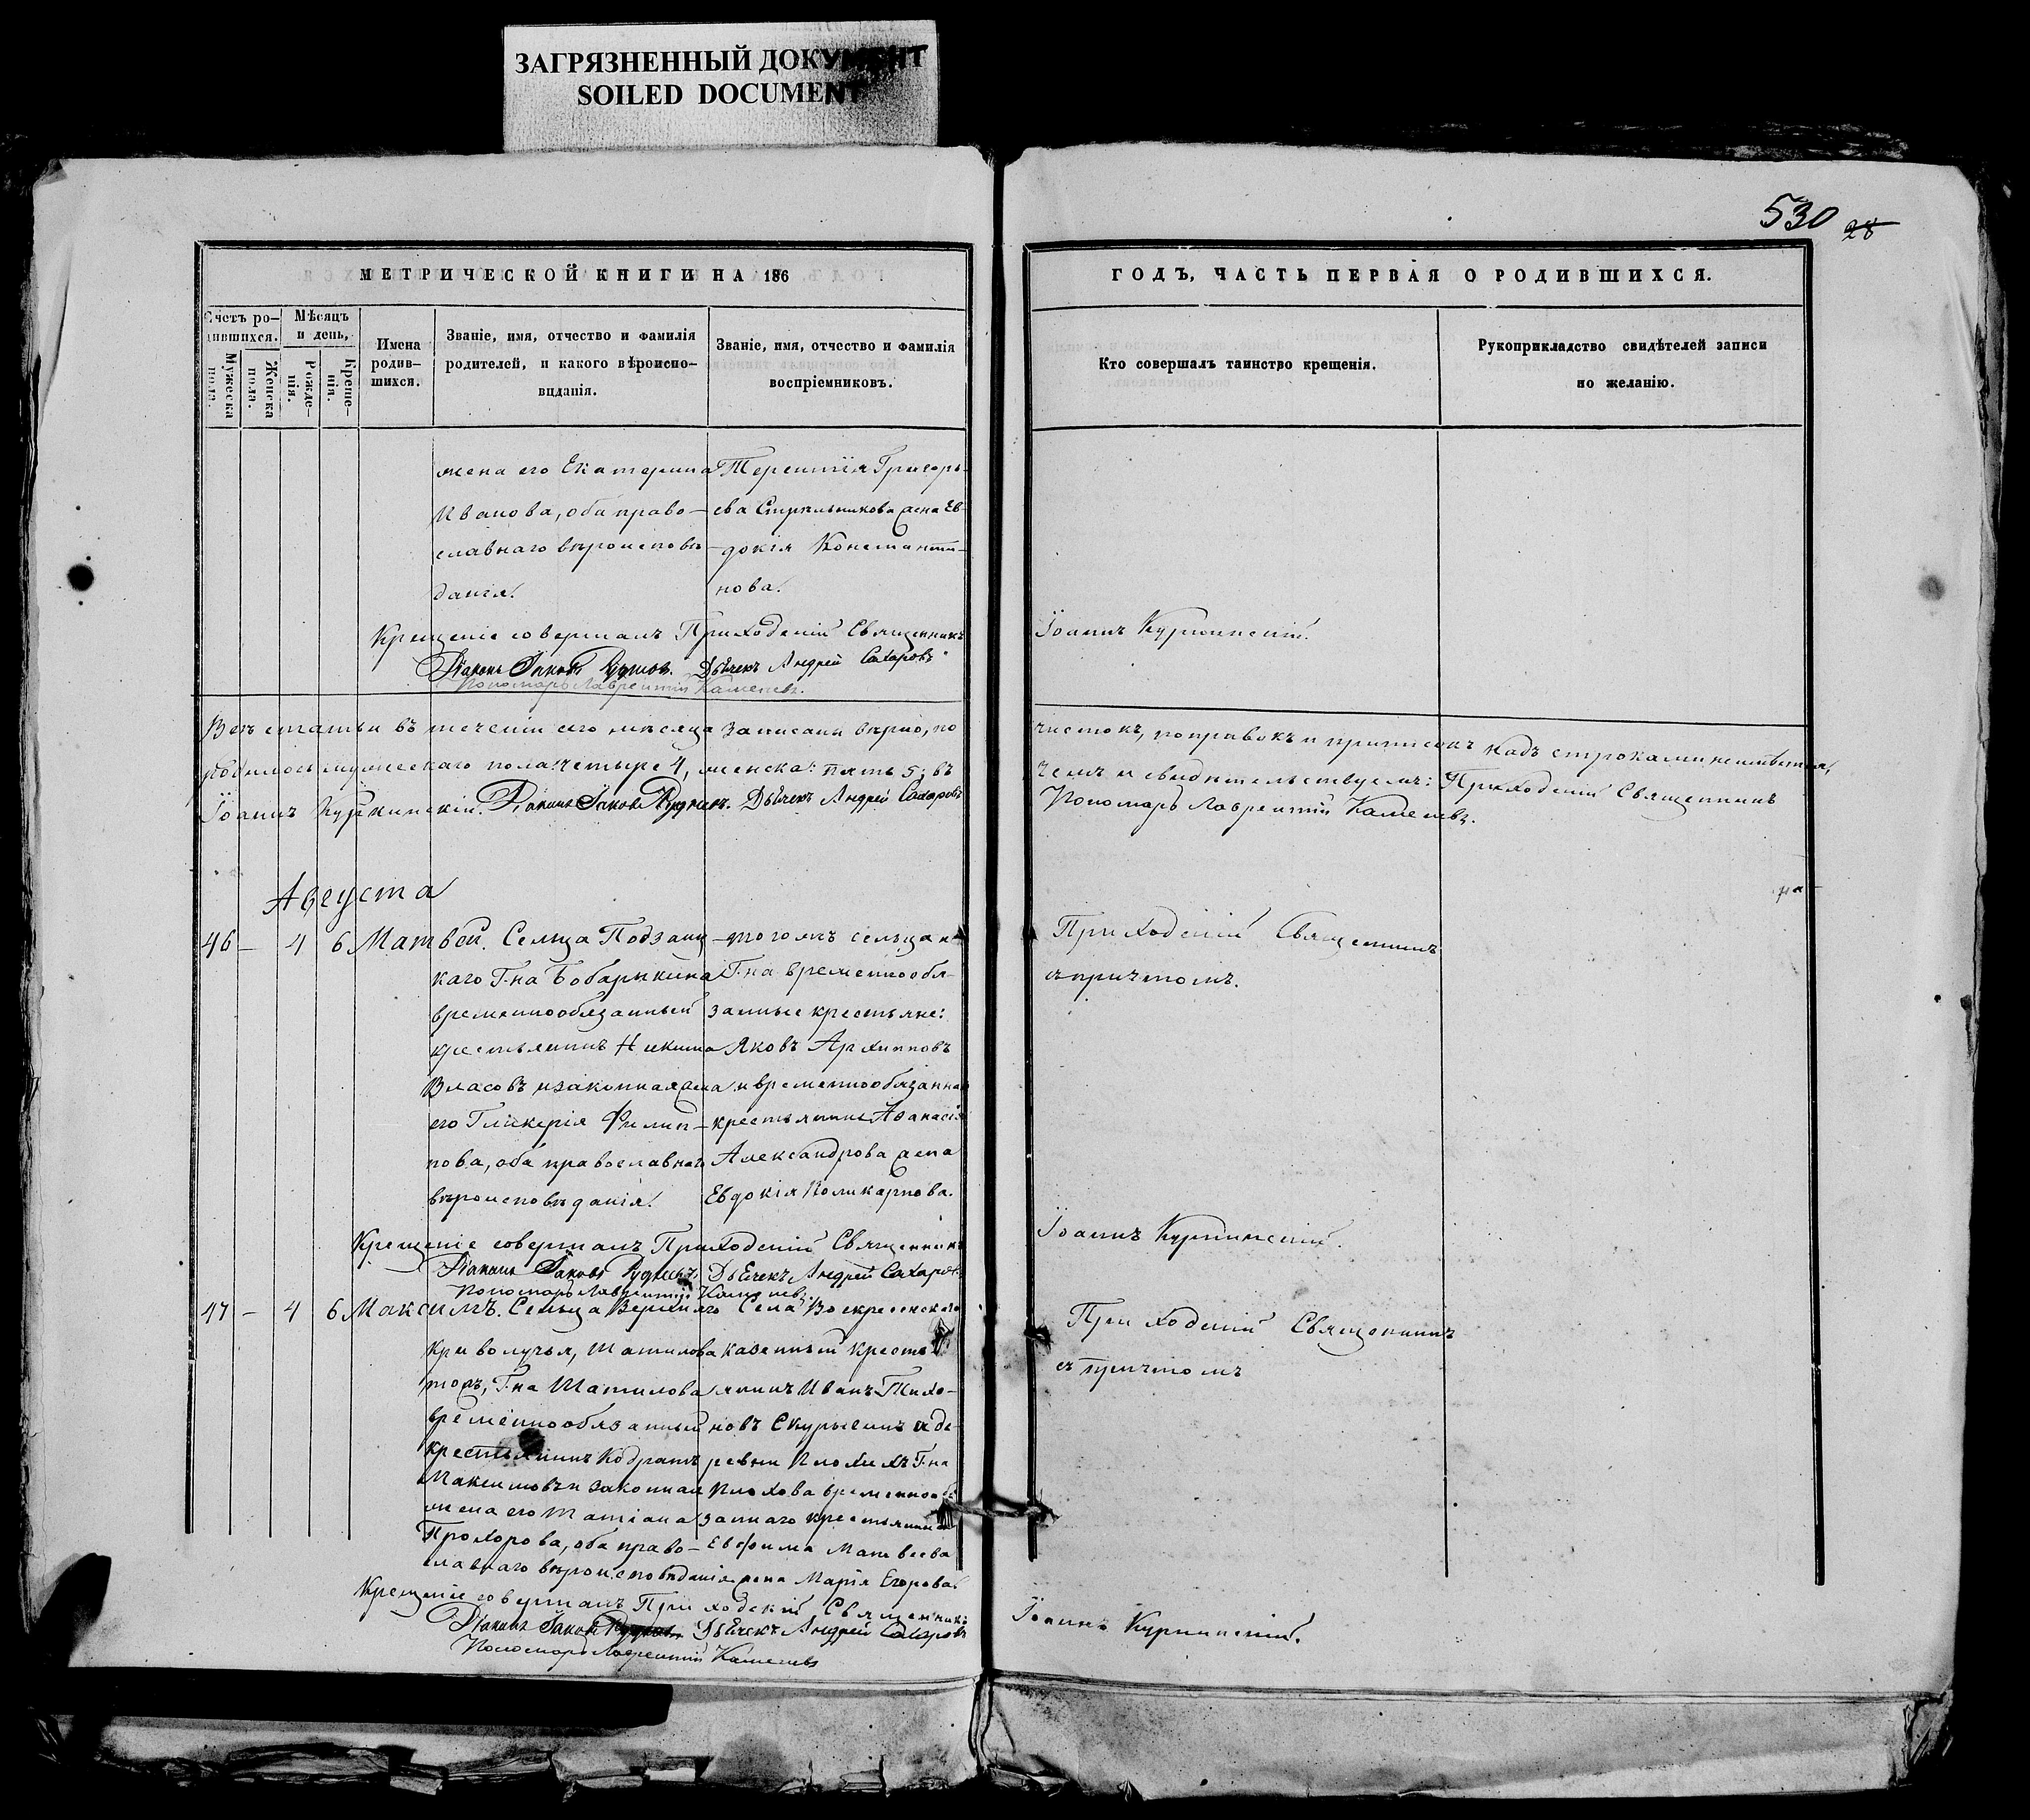 ЗАГРЯЗНЕННЫЙ ДОКУМЕНТ
SOILED DOCUMENT
530 28
МЕТРИЧЕСКОЙ КНИГИ НА 186
ГОДЪ, ЧАСТЬ ПЕРВАЯ О РОДИВШИХСЯ.
Счетъ ро-
дившихся.
Мужеска
пола.
Женска
пола.
Мѣсяцъ
и день,
Рожде-
нія.
Креще-
нія.
Имена
родив-
шихся.
Званіе, имя, отчество и фамилія
родителей, и какого вѣроиспо-
вѣданія.
Званіе, имя, отчество и фамилія
воспріемниковъ.
Кто совершалъ таинство крещенія.
Рукоприкладство свидѣтелей записи
по желанію.
жена его Екатерина
Иванова, оба право-
славнаго вѣроисповѣ-
данія.
Терентія Григорь-
ева Стрельникова жена Ев-
докія Константи-
нова.
Крещеніе совершалъ Приходскій Священникъ
Іоаннъ
Діаконъ Іаковъ Руднев. Дьячекъ Андрей Сахаровъ
Пономарь Лаврентій Каменевъ.
Всѣ статьи въ теченіи сего мѣсяца записаны вѣрно, по
чистокъ, поправокъ и приписокъ надъ строками
родилось мужескаго пола: четыре 4, женска: пять 5; въ
чемъ и свидѣтельствуемъ: Приходскій Священникъ
Іоаннъ
Діаконъ Іаковъ Руднев. Дьячекъ Андрей Сахаровъ
Пономарь Лаврентій Каменевъ.
Августа
46 - 4 6 Матвей.
Сельца
каго Г-на Бобарыкина
временнообязанный
крестьянинъ Никита
Власовъ и законная жена
его Гликерія Филип-
пова, оба православнаго
вѣроисповѣданія.
тогожъ сельца и
Г-на временнообя-
занные крестьяне:
Яковъ Архиповъ
и временнообязанна
крестьянина Аѳанасія
Александрова жена
Евдокія Поликарпова.
Приходскій Священникъ
съ причтомъ.
Крещеніе совершалъ Приходскій Священникъ
Іоаннъ
Діаконъ Іаковъ Рудневъ, Дьячекъ Андрей Сахаровъ
Пономарь Лаврентій Каменевъ.
47 - 4 6 Максимъ.
Сельца Верхняго
Криволучья, Шатилова
тожъ, Г-на Шатилова
временнообязанный
крестьянинъ Кодратъ
Максимовъ и законная
жена его Татіана
Прохорова, оба право-
славнаго вѣроисповѣданія
Села Воскресенскаго
казенный кресть
янинъ Иванъ Тихо-
новъ и де-
ревни Плохихъ Г-на
Плохова временнообя
заннаго крестьянина
Евфима Матвеева
жена Марія Егорова.
Приходскій Священникъ
съ причтомъ
Крещеніе совершалъ Приходскій Священникъ
Іоаннъ
Діаконъ Іаковъ Рудневъ Дьячекъ Андрей Сахаровъ
Пономарь Лаврентій Каменевъ